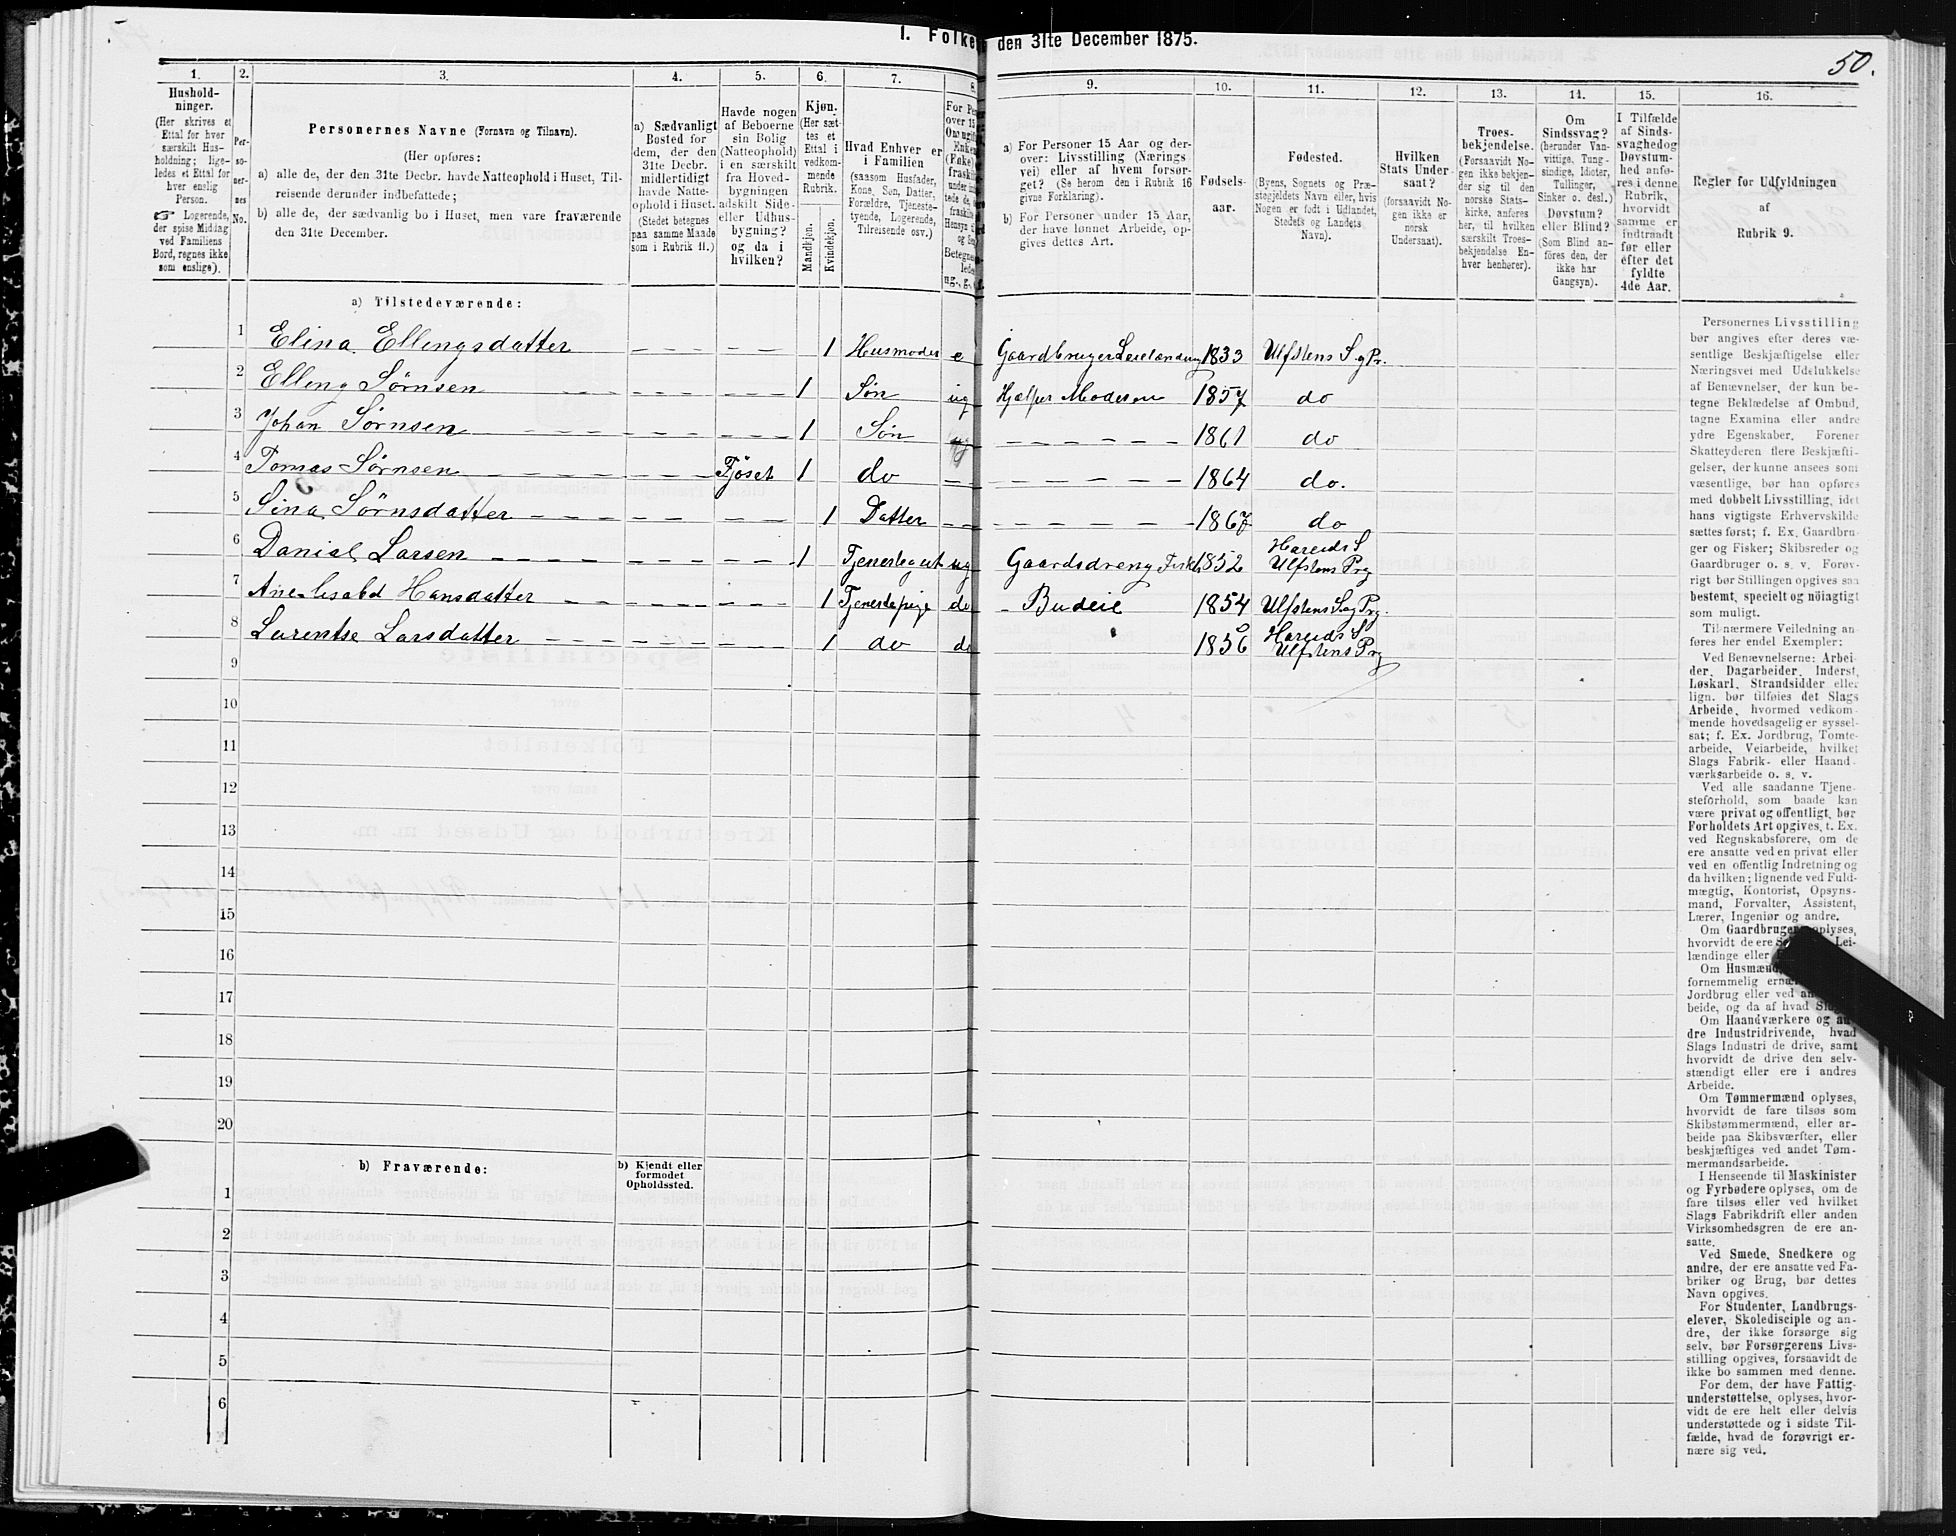 1. Folke
den 31te December 1875.
50.
1.
2.
3.
4.
5.
6.
7.
8.
Hushold-
ninger.
(Her skrives et
Ettal for hver
særskilt Hus-
holdning; lige-
ledes et Ettal for
hver enslig
Person.
☞ Logerende,
der spise Middag
ved Familiens
Bord, regnes ikke
som enslige).
Per-
so-
ner-
nes
No.
Personernes Navne (Fornavn og Tilnavn).
(Her opføres:
a) alle de, der den 31te Decbr. havde Natteophold i Huset, Til-
reisende derunder indbefattede;
b) alle de, der sædvanlig bo i Huset, men vare fraværende
den 31te December.
a) Sædvanligt
Bosted for
dem, der den
31te Decbr.
midlertidigt
havde Natte-
ophold i Huset.
(Stedet betegnes
paa samme Maade
som i Rubrik 11.)
Havde nogen
af Beboerne
sin Bolig
(Natteophold)
i en særskilt
fra Hoved-
bygningen
adskilt Side-
eller Udhus-
bygning?
og da i
hvilken?
Kjøn.
(Her sæt-
tes et
Ettal i
vedkom-
mende
Rubrik.
Mandkjøn.
Kvindekjøn.
Hvad Enhver er
i Familien
(saasom Husfader,
Kone, Søn, Datter,
Forældre, Tjeneste-
tyende, Logerende,
Tilreisende osv.)
For Pe
over 15
Om ugift
Enke
(Fake)
fraskil
under in
tede, de
fraskilt
Hensyn
og Se
Betegne
lede
ug., g.,
9.
10.
11.
12.
13.
14.
15.
16.
a) For Personer 15 Aar og der-
over: Livsstilling (Nærings
vei) eller af hvem forsør-
get? (Se herom den i Rubrik 16
givne Forklaring).
b) For Personer under 15 Aar,
der have lønnet Arbeide, op-
gives dettes Art.
Fødsels-
aar.
Fødested.
(Byens, Sognets og Præ-
stegjeldets Navn eller, hvis
Nogen er født i Udlandet,
Stedets og Landets
Navn).
Hvilken
Stats Under
saat?
(forsaavidt No-
gen ikke er
norsk
Undersaat).
Troes-
bekjendelse.
(Forsaavidt No-
gen ikke bekjen-
der sig til den
norske Stats-
kirke, anføres
her, til hvilken
særskilt Troes-
bekjendelse En-
hver henhører).
Om
Sindssvag?
(herunder Van-
vittige, Tung-
sindige, Idioter,
Tullinger,
Sinker o. desl.)
Døvstum?
eller Blind?
(Som Blind an-
føres den, der
ikke har
Gangsyn).
I Tilfælde
af Sinds-
svaghed og
Døvstum-
hed anfø-
res i denne
Rubrik,
hvorvidt
samme er
indtraadt
før eller
efter det
fyldte
4de Aar.
Regler for Udfyldningen
af
Rubrik 9.
a) Tilstedeværende:
1 Elina Ellingsdatter 1 Husmoder e Gaardbruger Leilænding 1833 Ulfstens S. og Pr.
2 Elling Sørnsen 1 Søn ug Hjælper Moderen 1857 do
3 Johan Sørnsen 1 Søn 1861 do
4 Tomas Sørnsen Fjøset 1 do 1864 do.
5 Sina Sørnsdatter 1 Datter 1867 do
6 Daniel Larsen 1 Tjenestegut ug Gaardsdreng Fisker 1852 Hareids S Ulfstens Prg
7 Ane-lisabd Hansdatter 1 Tjenestepige do Budeie 1854 Ulfstens S. og Prg.
8 Larentse Larsdatter 1 do do 1856 Hareids S Ulfstens Prg
9
10
11
12
13
14
15
16
17
18
19
20
b) Fraværende:
b) Kjendt eller
formodet
Opholdssted.
1
2
3
4
5
6
Personernes Livsstilling
bør angives efter deres væ-
sentlige Beskjæftigelse eller
Næringsvei med Udelukkelse
af Benævnelser, der kun be-
tegne Beklædelse af Ombud,
tagne Examina eller andre
ydre Egenskaber. Forener
Skatteyderen flere Beskjæfti-
gelser, der kunne ansees som
væsentlige, bør han opføres
med dobbelt Livsstilling, idet
hans vigtigste Erhvervskilde
sættes først; f. Ex. Gaardbru-
ger og Fisker; Skibsreder og
Gaardbruger o. s. v. Forøv-
rigt bør Stillingen opgives saa
bestemt, specielt og nøiagtigt
som muligt.
Til nærmere Veiledning an-
føres her endel Exempler:
Ved Benævnelserne: Arbei-
der, Dagarbeider, Inderst,
Løskarl, Strandsidder eller
lign. bør tilføies det Slags
Arbeide, hvormed vedkom-
mende hovedsagelig er syssel-
sat; f. Ex. Jordbrug, Tomte-
arbeide, Veiarbeide, hvilket
Slags Fabrik- eller Haand-
værksarbeide o. s. v.
Ved alle saadanne Tjene-
steforhold, som baade kan
være privat og offentligt, bør
Forholdets Art opgives, t. Ex.
ved Regnskabsførere, om de
ere ansatte ved en privat eller
ved en offentlig Indretning og
da hvilken; lignende ved Fuld-
mægtig, Kontorist, Opsyns-
mand, Forvalter, Assistent,
Lærer, Ingeniør og andre.
Om Gaardbrugere oplyses,
hvorvidt de ere Lei-
lændinge eller
Om Husmænd,
fornemmelig ernæ
Jordbrug eller ved an
beide, og da af hvad Slags
Om Haandværkere og an-
dre Industridrivende, hvad
Slags Industri de drive, samt
hvorvidt de drive den selv-
stændigt eller ere i andres
Arbeide.
Om Tømmermænd oplyses,
hvorvidt de fare tilsøs som
Skibstømmermænd, eller ar-
beide paa Skibsværfter, eller
beskjæftiges ved andet Tøm-
mermandsarbeide.
I Henseende til Maskinister
og Fyrbødere oplyses, om de
fare tilsøs eller ved hvilket
Slags Fabrikdrift eller anden
Virksomhedsgren de ere an-
satte.
Ved Smede, Snedkere og
andre, der ere ansatte ved Fa-
briker og Brug, bør dettes
Navn opgives.
For Studenter, Landbrugs-
elever, Skoledisciple og an-
dre, der ikke forsørge sig
selv, bør Forsørgerens Livs-
stilling opgives, forsaavidt de
ikke bo sammen med denne.
For dem, der have Fattig-
understøttelse, oplyses, hvor-
vidt de ere helt eller delvis
understøttede og i sidste Til-
fælde, hvad de forøvrigt er-
nære sig ved.